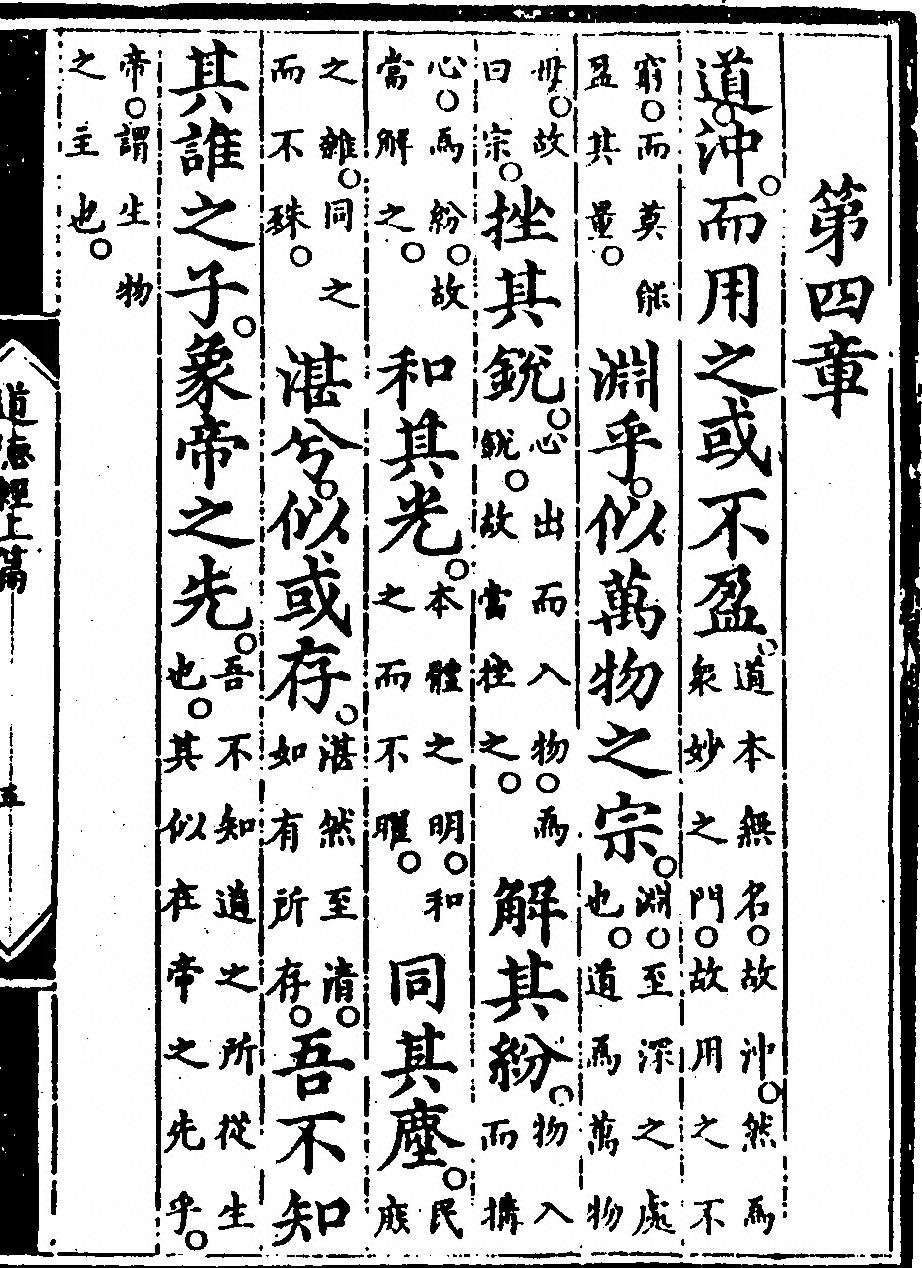 第四章
道。沖。而用之或不盈。道本無名。故沖。然爲衆妙之門。故用之不
窮。而莫能盈其量。淵乎。似萬物之宗。淵。至深之處也。道爲萬物
毋。故曰宗。挫其銳。心出而入物。爲銳。故當挫之。解其紛。物入而搆
心。爲紛。故當解之。和其光。本體之明。和之而不曜。同其塵。民庶
之雜。同之而不殊。湛兮。似或存。湛然至清。如有所存。吾不知
其誰之子。象帝之先。吾不知道之所從生也。其似在帝之先乎。
帝。謂生物之主也。
道德經上篇
五